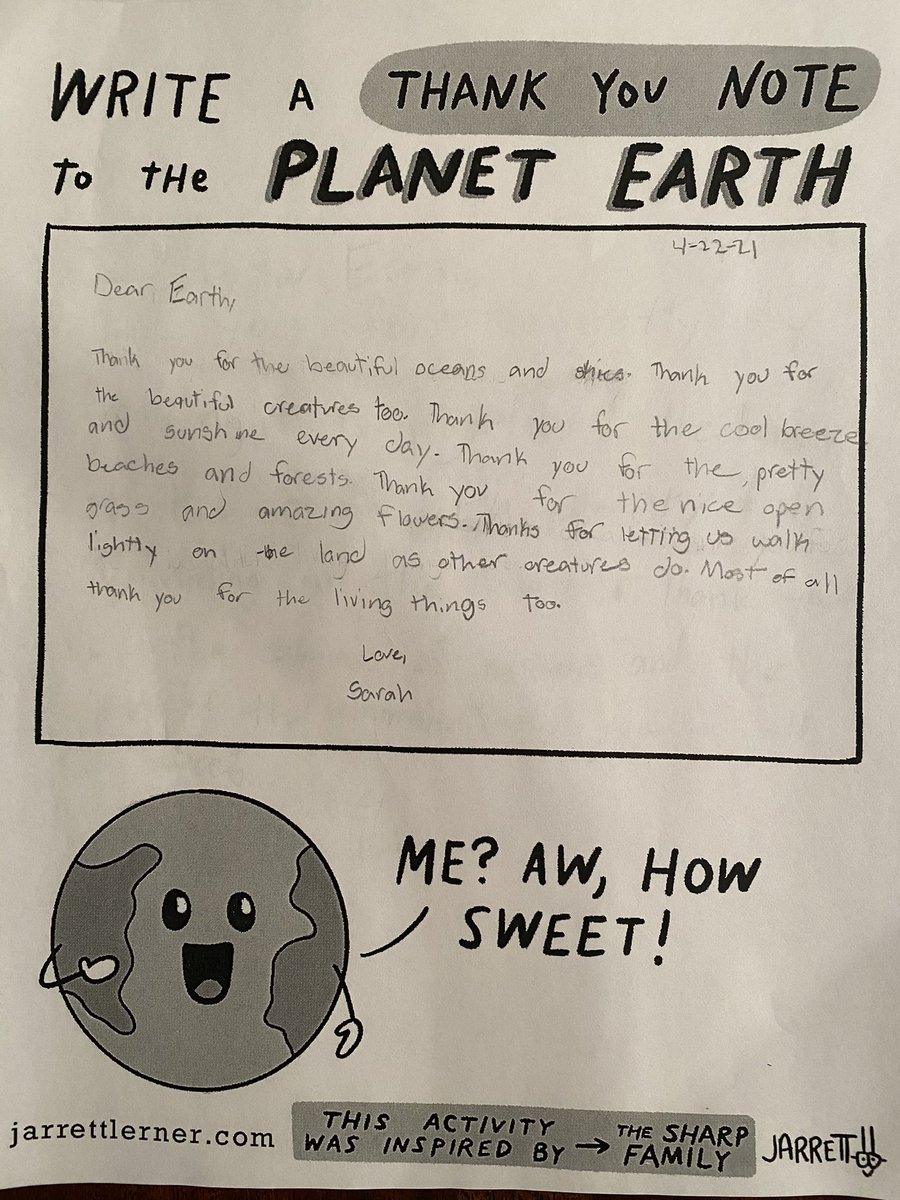 WRITE A THANK YOU NOTE
to tHe PLANET EARTH
4-22-21
Dear Earth,
Thank you for the beautiful oceans and skies. Thank you for
the beautiful creatures too. Thank you for the cool breeze
and sunshine every day. Thank you for the pretty
beaches and forests. Thank you for the nice open
grass and amazing flowers. Thanks for letting us walk
lightly on the land as other creatures do. Most of all
thank you for the living things too.
Love,
Sarah
ME? AW, HOW
SWEET!
jarrettlerner.com
THIS ACTIVITY
WAS INSPIRED BY → THE SHARP
FAMILY
JARRETT